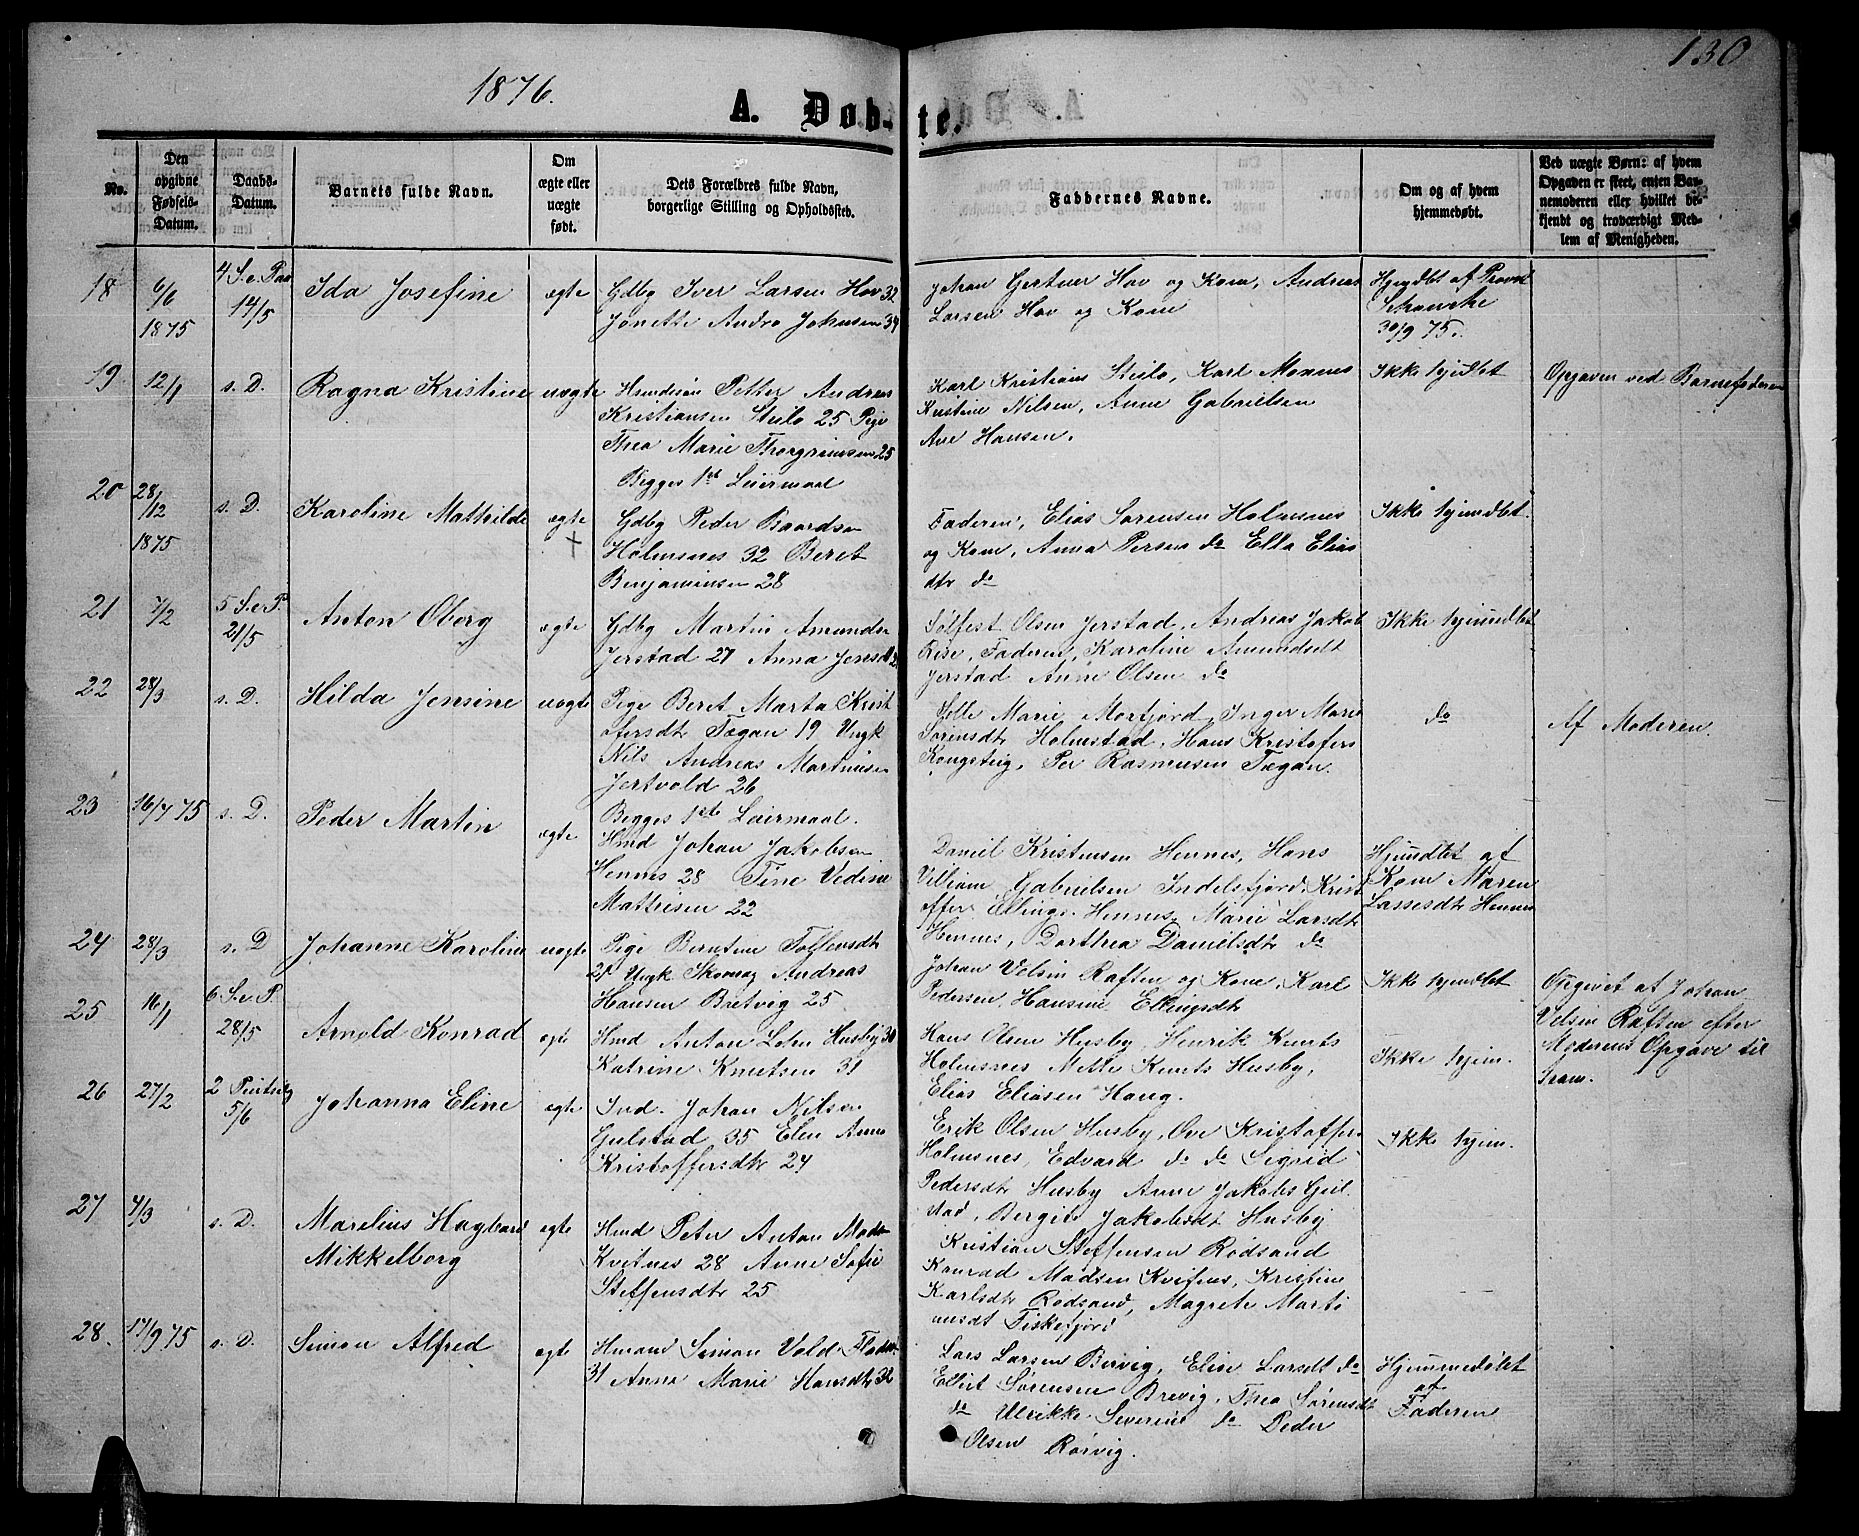 1876.
130
A. Døb-te.
No.
Den opgivne Fødsels-Datum.
Daabs-Datum.
Barnets fulde Navn.
Om ægte eller uægte født.
Dets Forældres fulde Navn, borgerlige Stilling og Opholdssted.
Faddernes Navne.
Om og af hvem hjemmedøbt.
Ved uægte Børn: af hvem Opgaven er skeet, enten Barnemoderen eller hvilket bekjendt og troværdigt Medlem af Menigheden.
18
6/6
1875
4 S. e. Paa
14/5
Ida Josefine
ægte
Gdbg Iver Larsen Hov 32
Jonette Andrea Johnsen 34
Johan Gertner Hov og Kone, Andreas
Larsen Hov og Kone
Hjmdbt af Provst
Schancke
30/9 75.
19
12/1
s. D.
Ragna Kristine
uægte
Husmdsøn Petter Andreas
Kristiansen Steilo 25 Pige
Thea Marie Thorgrimsen 25
Begges 1st Leiermaal
Karl Kristians Steilo, Karl Monnes
Kristine Nilsen, Anne Gabrielsen
Ane Hansen.
Ikke hjdbt
Opgaven ved Barnefaderen
20
28/12
1875
s. D.
Karoline Mathilde
ægte
+
Gdbg Peder Baardsen
Holmsnes 32 Beret
Benjaminsen 28
Faderen, Elias Sørensen Holmsnes
og Kone, Anna Persen do Ella Elias
dtr do
Ikke hjmdbt
21
7/2
5 S. e. P.
21/5
Anton Oberg
ægte
Gdbg Martin Amundsen
Jerstad 27 Anna Jensdt
Sølfest Olsen Jerstad, Andreas Jakob
Rise, Faderen, Karoline Amundsdt
Jerstad Anne Olsen do
Ikke hjmdbt
22
28/3
s. D.
Hilda Jensine
uægte
Pige Beret Marta Krist
ofersdt Tægan 19 Ungk
Nils Andreas Martinsen
Jertvold 26
Begges 1ste Leiermaal.
Marie Morfjord, Inger Marie
Sørensdt Holmstad, Hans Kristofers
Kongsteig, Per Rasmussen Tægan.
do
Af Moderen.
23
16/7 75
s. D.
Peder Martin
ægte
Hmd Johan Jakobsen
Hennes 28 Tine Vedine
Mathisen 22
Daniel Kristensen Hennes, Hans
Villiam Gabrielsen Indelsfjord, Krist
offer Ellings. Hennes, Marie Larsdtr
Hennes, Dorthea Danielsdtr do
Hjmdbt af
Kone Maren
Lassesdtr Hennes
24
28/3
s. D
Johanne Karoline
uægte
Pige Berntine Toffensdtr
21 Ungk Skomag Andreas
Hansen Bretvig 25
Johan Velsin Raften og Kone, Karl
Pedersen, Hansine Ellingsdtr
Ikke hjemdbt
Opgivet af Johan
Velsen Raften efter
Moderens Opgave til
25
16/1
6 S. e. P.
28/5
Arnold Konrad
ægte
Hmd Anton Husby 30
Katrine Knutsen 31
Hans Olsen Husby, Henrik Knuts
Holmsnes Mette Knuts Husby,
Elias Eliasen Haug.
Ikke hjem.
26
27/2
2 Pintsdg
5/6
Johanna Eline
ægte
Ind. Johan Nilsen
Gulstad 35 Elen Anna
Kristoffersdtr 24
Erik Olsen Husby, Ove Kristoffers
Holmsnes, Edvard do do Sigrid
Pedersdtr Husby Anne Jakobs Gul
stad, Bergite Jakobsdt Husby
Ikke hjem.
27
4/3
s. D.
Marelius Hagbard
Mikkelborg
ægte
Hmd Peter Anton Mads
Kvitnes 28 Anne Sofie
Steffensdtr 25
Kristian Steffensen Rødsand
Konrad Madsen Kvitnes, Kristine
Karlsdtr Rødsand, Magrete Marti
nusdt Fiskefjord
28.
17/9 75
s. D.
Simon Alfred
ægte
Hmand Simon Vold
31 Anna Marie Hansdtr 32
Lars Larsen Brevig, Elise Larsdt do
Elliot Sørensen Brevig, Thea Sørensdt
do Ulrikke Severine do Peder
Olsen Rørvig.
Hjemmedøbt
af
Faderen